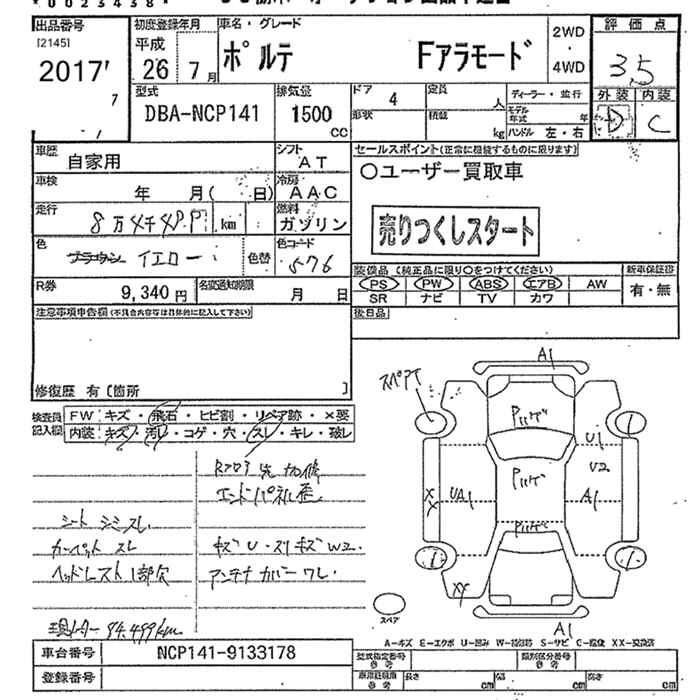 出品番号
[2145]
2017
初度登録年月
平成
26 7月
車名・グレード
ポルテ Fアラモード
2WD
・
4WD
評価点
3.5
外装 内装
D C
型式
DBA-NCP141
排気量
1500
CC
ドア 4
形状
定員 人
積載 kg
ディーラー・並行
モデル年式 年
ハンドル 左・右
車歴 自家用
シフト AT
車検 年 月( 日)
冷房 AAC
走行 8万4千 km
燃料 ガソリン
色 イエロー
色替
色コード 576
R券 9,340円
名変通知期限 月 日
セールスポイント(正常に機能するものに限ります)
〇ユーザー買取車
売りつくしスタート
装備品 (純正品に限り〇をつけてください)
新車保証書
PS PW ABS エアB AW
有・無
SR ナビ TV カワ
後日品
注意事項申告欄(不具合内容等は具体的に記入して下さい)
修復歴 有〔箇所 〕
検査員記入欄
FW キズ・飛石・ヒビ割・リペア跡・×要
内装 キズ・汚レ・コゲ・穴・スレ・キレ・破レ
エンドパネル歪
シート シミ スレ
カーペット スレ
キズU・スリキズW2.
ヘッドレスト1部欠
アンテナカバーワレ.
84,499km
スペアT
A1
U1
U2
A1
UA1
XX
XX
A1
スペア
A-キズ E-エクボ U-凹み W-補修跡 S-サビ C-腐食 XX-交換済
車台番号 NCP141-9133178
登録番号
型式指定番号 参考
類別区分番号 参考
長さ cm
幅 cm
高さ cm